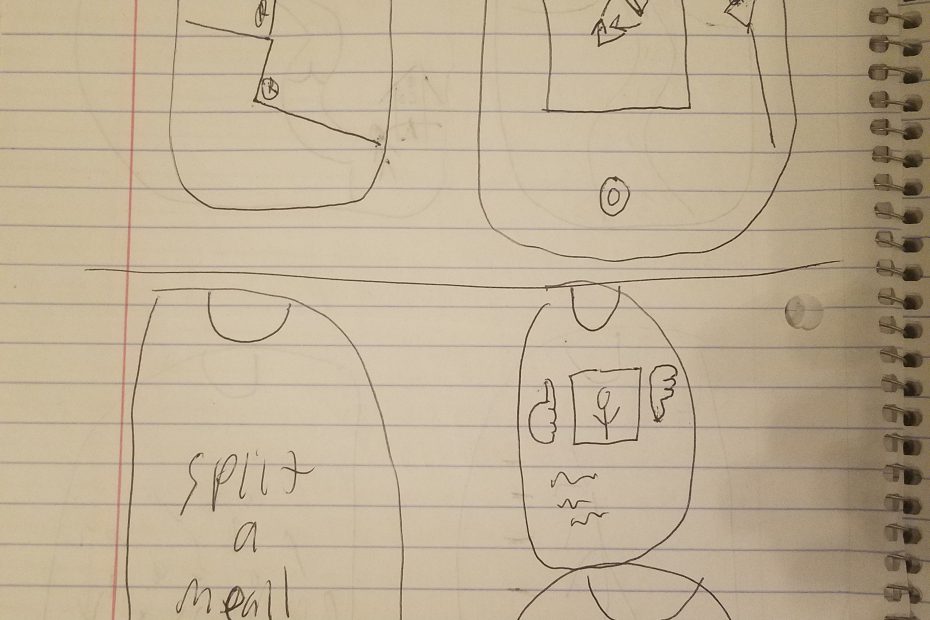 R
R
split
a
meall